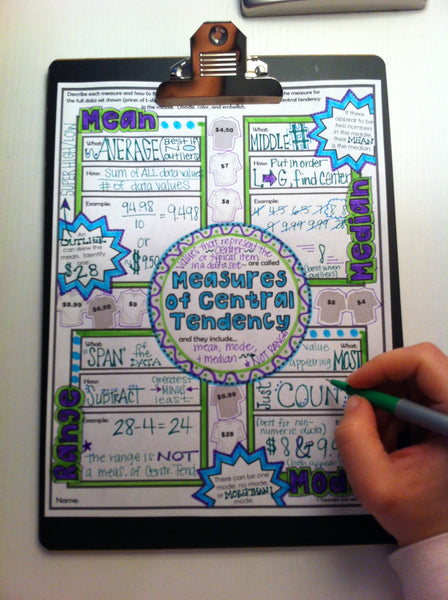 Describe each measure and how to
the measure for
the full data set shown (prices of t-sh
central tendency
in the middle. Doodle, color, and embellish.
Mean
What: AVERAGE (Best if NO outliers)
How: Sum of ALL data values
# of data values
Example:
94.98
10
= 9.498
or
$9.50
SUPER high/low
An OUTLIER can skew the mean. Identify
$28
$4.50
$7
$8
What: MIDDLE #
How: Put in order
L → G, find center
Example:
8
(best when outliers)
Median
If there appear to be two numbers in the middle, their MEAN is the median.
$9.99
$6.50
$9
$8
$4
Values that represent the center or typical item in a data set... are called
Measures
of Central
Tendency
and they include...
mean, mode,
+ median
*NOT RANGE!
Range
What:
"SPAN" of the DATA
How:
SUBTRACT greatest MINUS least.
Example:
28-4=24
the range is NOT
a meas. of Centr. Tend
$9.99
$28
value
appearing MOST
Just COUN
(best for non-numeric data)
$8 & 9.9
(both appea
Mod
There can be one mode, no mode, or MORE THAN 1 mode.
Name: